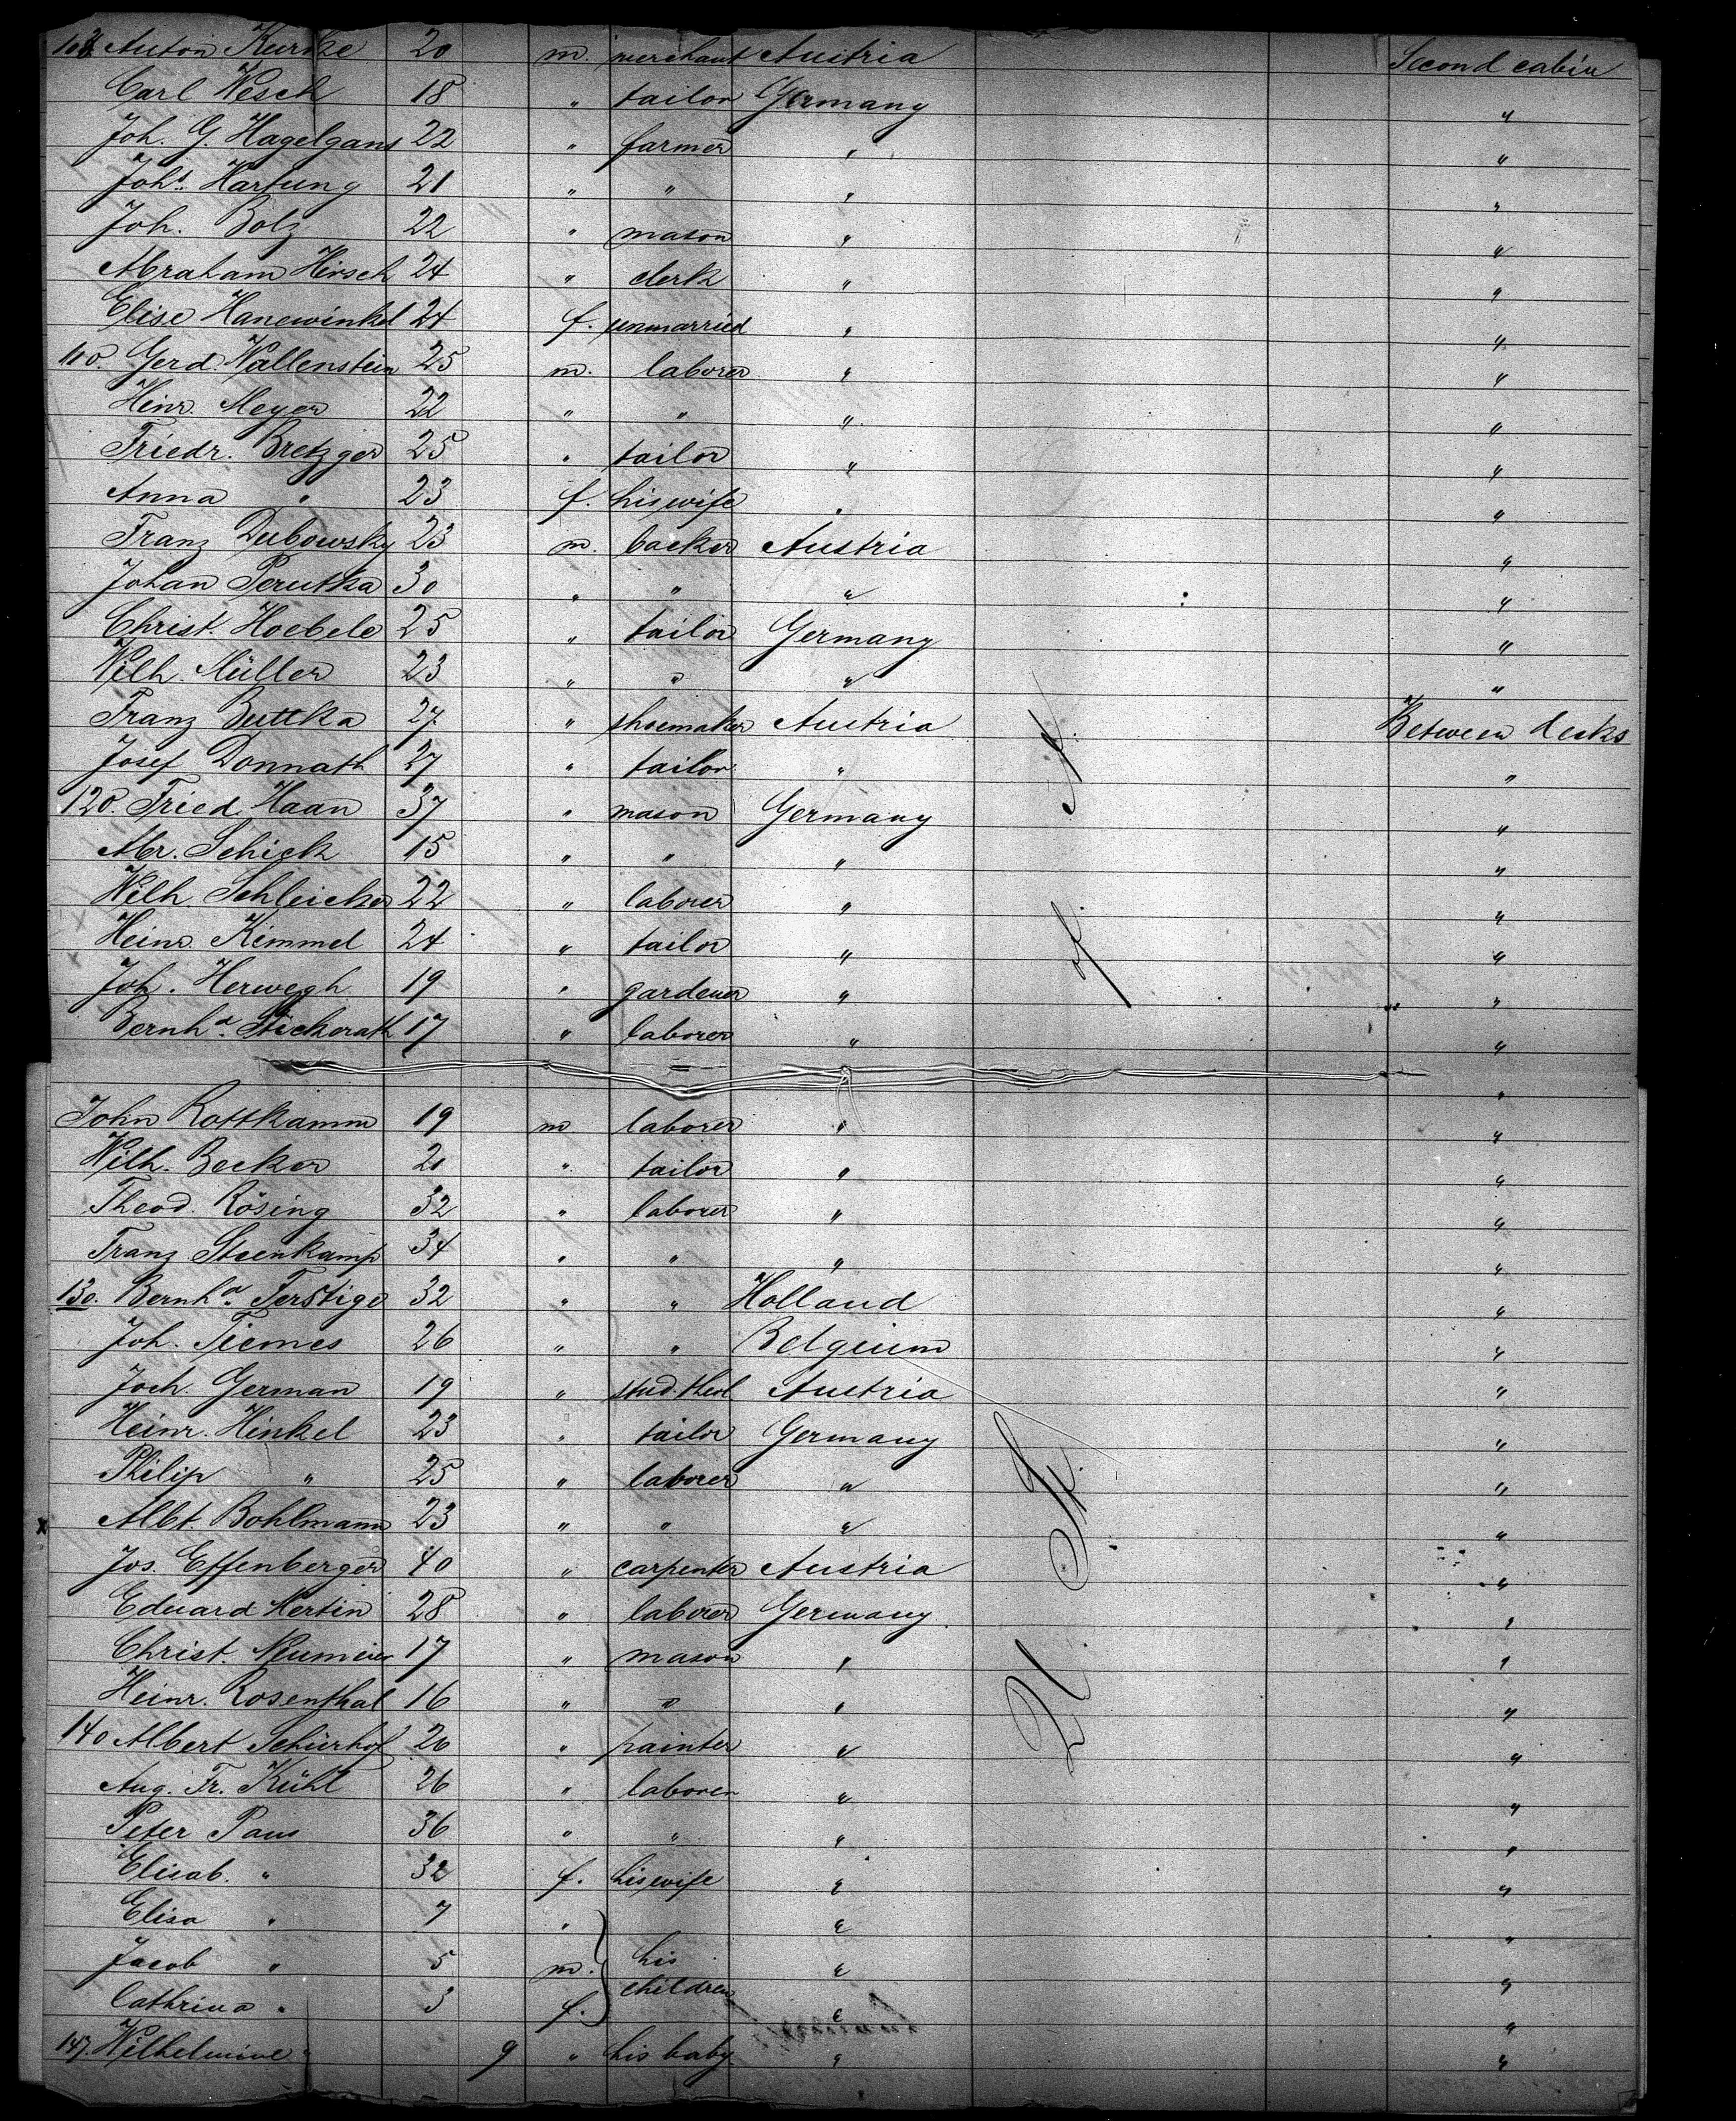 103. Anton Kurske 20 m. merchant Austria Second cabin
Carl Wesch 18 " tailor Germany "
Joh. G. Hagelgans 22 " farmer " "
Johs. Hartung 21 " " " "
Joh. Bolz 22 " mason " "
Abraham Hirsch 24 " clerk " "
Elise Hanewinkel 24 f. unmarried " "
110. Gerd. Wallenstein 25 m. laborer " "
Heinr. Meyer 22 " " " "
Friedr. Bretzger 25 " tailor " "
Anna " 23 f. his wife " "
Franz Dubowsky 23 m. backer Austria "
Johan Perutka 30 " " " "
Christ. Hoebele 25 " tailor Germany "
Wilh. Müller 23 " " " "
Franz Buttka 27 " shoemaker Austria Between decks
Josef Donnath 27 " tailor " "
120. Fried. Haan 37 " mason Germany "
Abr. Schick 15 " " " "
Wilh. Schleicher 22 " laborer " "
Heinr. Kimmel 24 " tailor " "
Joh. Herwegh 19 " gardener " "
Bernhd. Stickerath 17 " laborer " "
"
John Rottkamm 19 m laborer " "
Wilh. Becker 20 " tailor " "
Theod. Rösing 32 " laborer " "
Franz Steenkamp 34 " " " "
130. Bernhd. Terstige 32 " " Holland "
Joh. Tiemes 26 " " Belgium "
Joch. German 19 " stud. theol. Austria "
Heinr. Hinkel 23 " tailor Germany "
Philip " 25 " laborer " "
x Albt. Bohlmann 23 " " " "
Jos. Effenberger 40 " carpenter Austria "
Eduard Hertin 28 " laborer Germany "
Christ. Neumeier 17 " mason " "
Heinr. Rosenthal 16 " " " "
140 Albert Schürhof 26 " painter " "
Aug. Fr. Kühl 26 " laborer " "
Peter Paus 36 " " " "
Elisab. " 32 f. his wife " "
Elisa " 7 " " "
Jacob " 5 m. his " "
Cathrina " 3 f. children " "
147. Wilhelmine " 9 " his baby " "
U. St. of A.